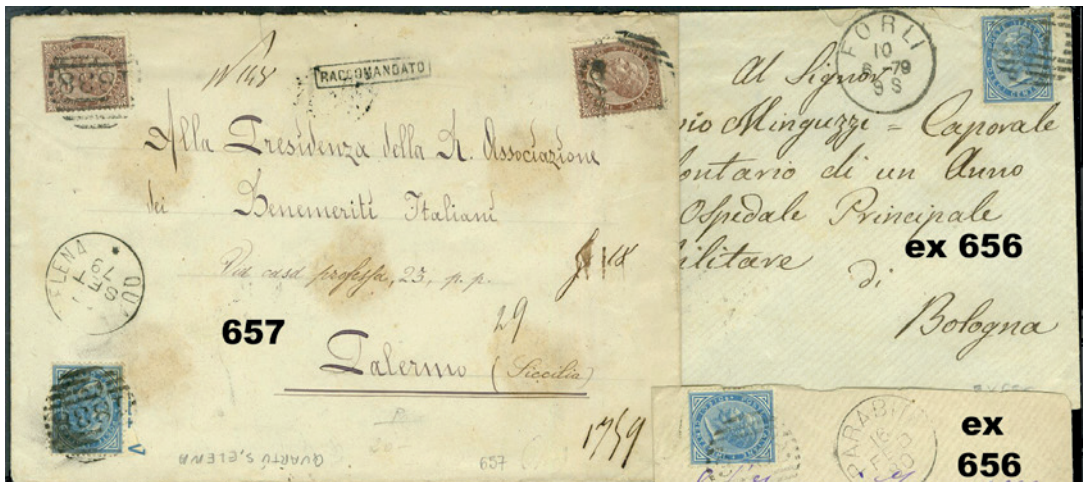 RACCOMANDATO
Alla Presidenza della R. Associazione
dei Benemeriti Italiani
Via casa professa, 23, p. p.
657
29
Palermo (Siccilia)
1759
QUARTU S. ELENA
657
ELENA
QU
FORLI
10
6 -79
9 S
Al Signor
Minguzzi = Caporale
di un Anno
Ospedale Principale
ex 656
di
Bologna
ex
656
PARABI
16